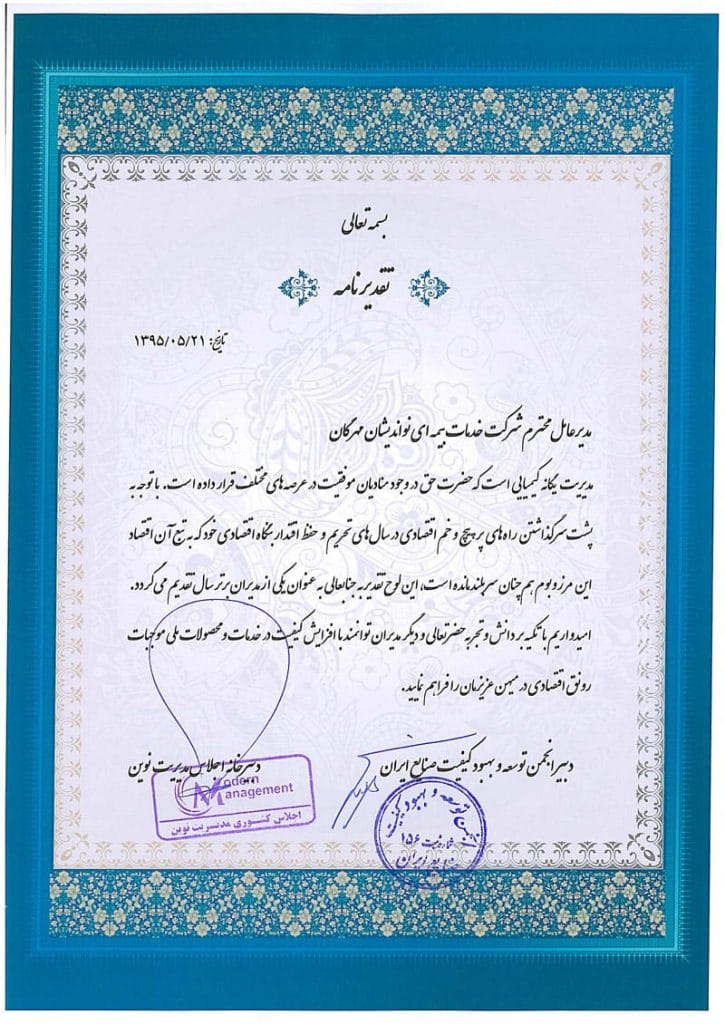 بسمه تعالی
تقدیرنامه
تاریخ: ۱۳۹۵/۰۵/۲۱
مدیرعامل محترم شرکت خدمات بیمه ای نواندیشان مهرگان
مدیریت یگانه کیمیایی است که حضرت حق در وجود منادیان موفقیت در عرصه های مختلف قرار داده است. با توجه به
پشت سر گذاشتن راه های پر پیچ و خم اقتصادی در سال های تحریم و حفظ اقتدار بنگاه اقتصادی خود که به تبع آن اقتصاد
این مرز و بوم هم چنان سربلند مانده است، این لوح تقدیر به جنابعالی به عنوان یکی از مدیران برتر سال تقدیم می گردد.
امیدواریم با تکیه بر دانش و تجربه حضرتعالی و دیگر مدیران توانمند با افزایش کیفیت در خدمات و محصولات ملی موجبات
رونق اقتصادی در میهن عزیزمان را فراهم نمایید.
دبیر انجمن توسعه و بهبود کیفیت صنایع ایران
دبیرخانه اجلاس مدیریت نوین
Modern
Management
اجلاس کشوری مدیریت نوین
انجمن توسعه و بهبود کیفیت
ثبت ۱۵۶
ایران